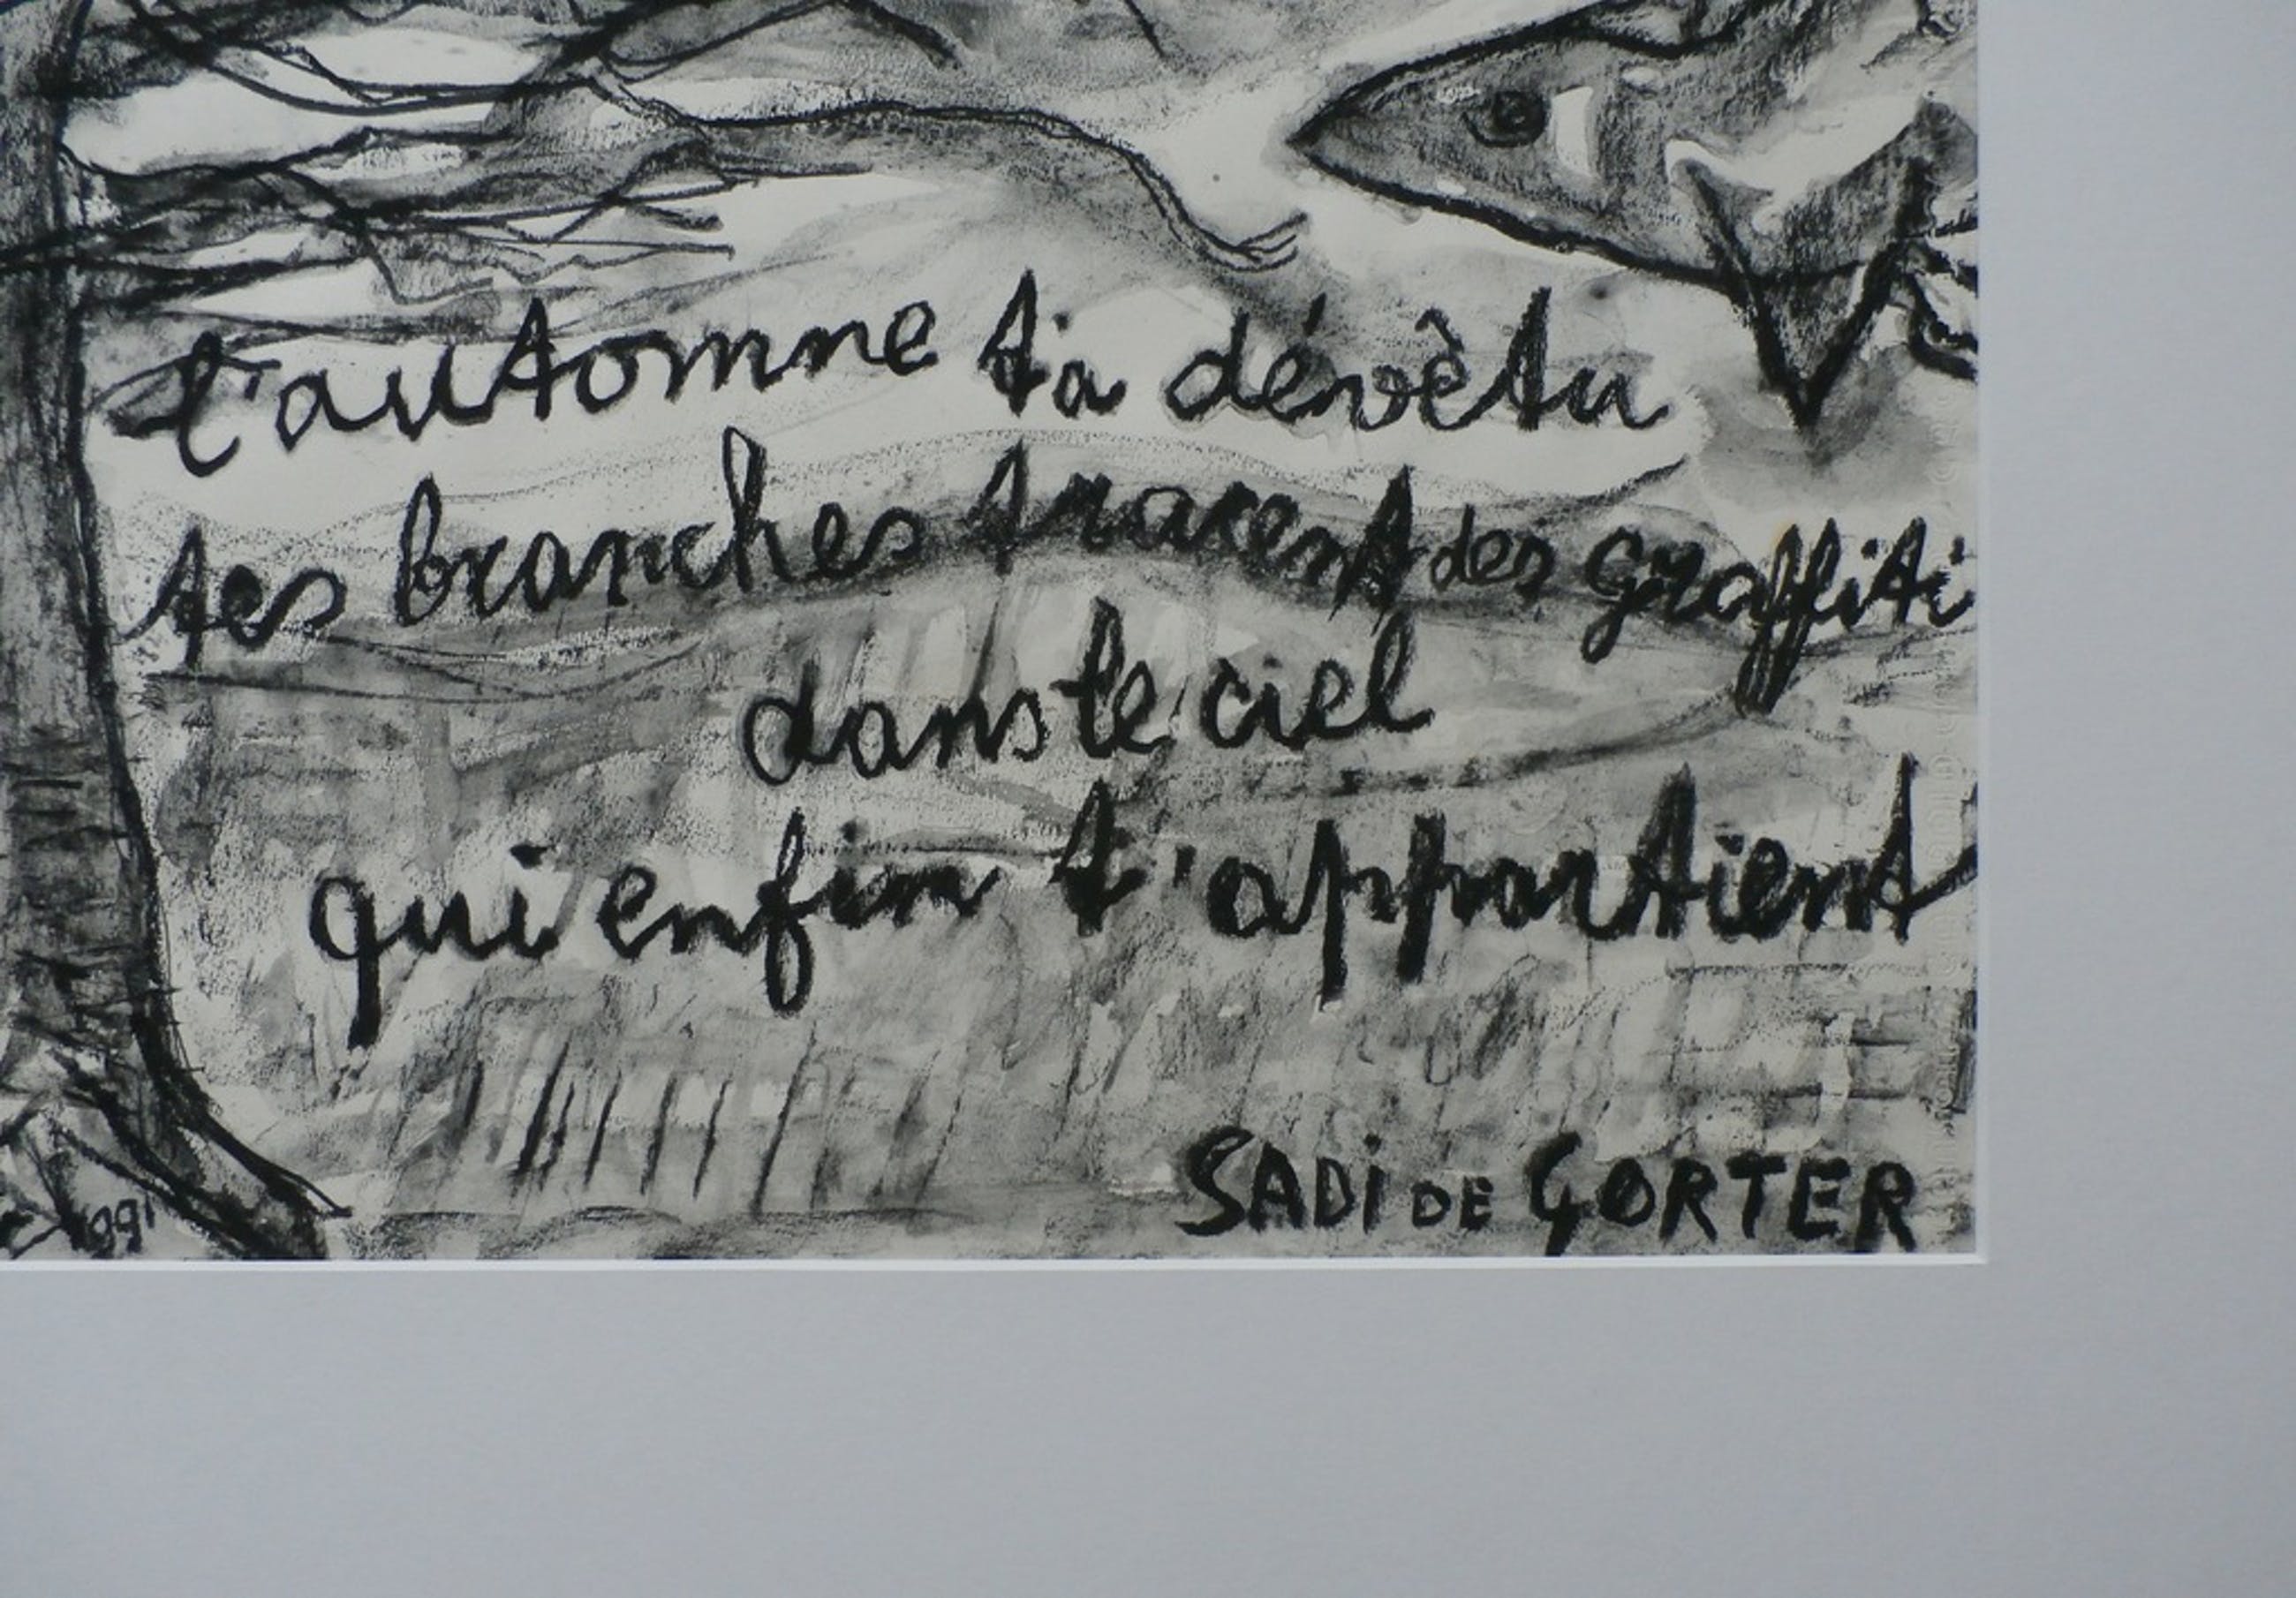 l'automne t'a dévètu
tes branches tracent des graffiti
dans le ciel
qui enfin t'appartient
SADI DE GORTER
1991